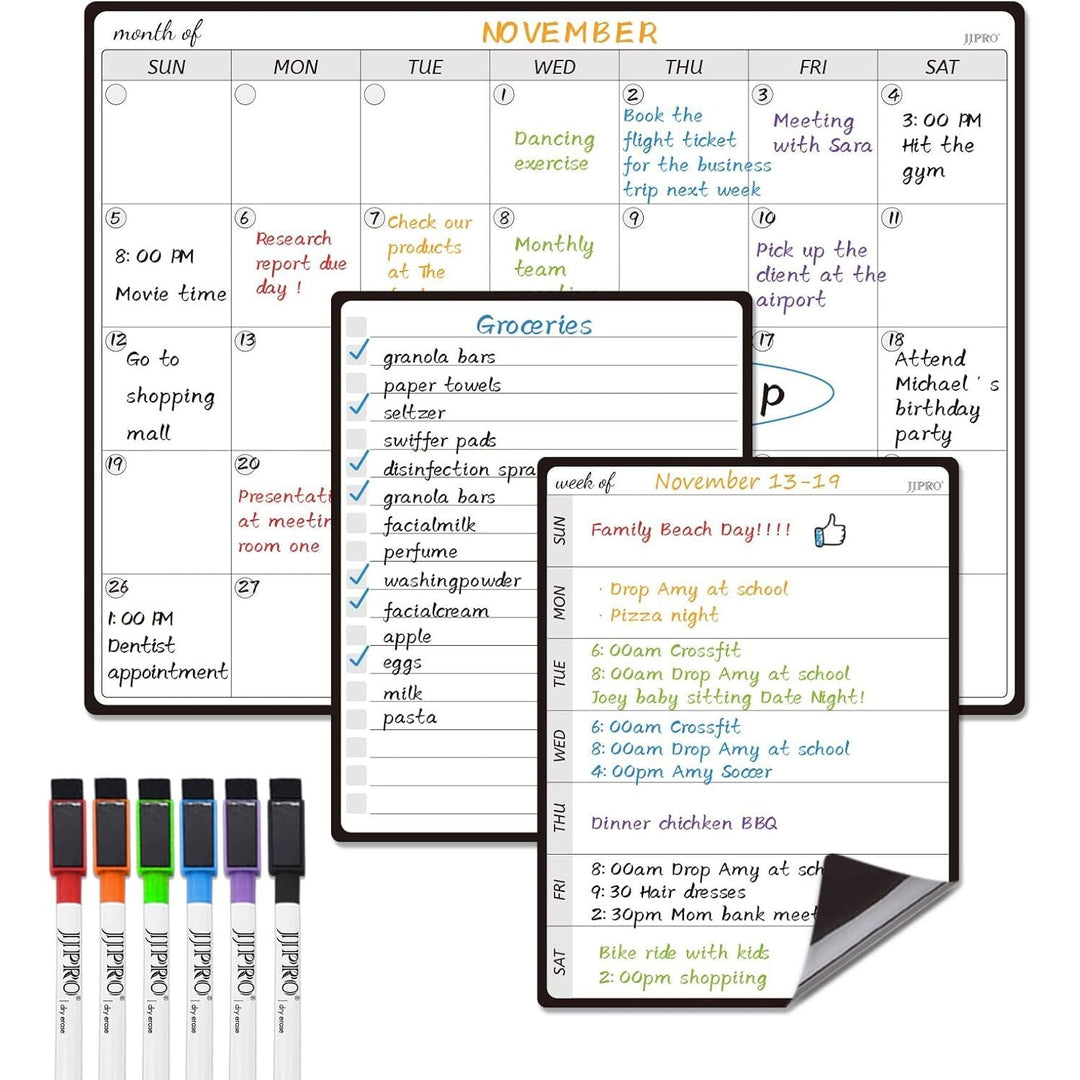 month of NOVEMBER JJPRO®
SUN MON TUE WED THU FRI SAT
1
Dancing
exercise
2
Book the
flight ticket
for the business
trip next week
3
Meeting
with Sara
4
3:00 PM
Hit the
gym
5
8:00 PM
Movie time
6
Research
report due
day !
7
Check our
products
at The
8
Monthly
team
9
10
Pick up the
client at the
airport
11
12
Go to
shopping
mall
13
17
p
18
Attend
Michael ' s
birthday
party
19
20
Presentati
at meetin
room one
26
1:00 PM
Dentist
appointment
27
Groceries
granola bars
paper towels
seltzer
swiffer pads
disinfection spra
granola bars
facialmilk
perfume
washingpowder
facialcream
apple
eggs
milk
pasta
week of November 13-19 JJPRO®
SUN
Family Beach Day!!!!
MON
· Drop Amy at school
· Pizza night
TUE
6:00am Crossfit
8:00am Drop Amy at school
Joey baby sitting Date Night!
WED
6:00am Crossfit
8:00am Drop Amy at school
4:00pm Amy Soccer
THU
Dinner chichken BBQ
FRI
8:00am Drop Amy at sch
9:30 Hair dresses
2:30pm Mom bank meet
SAT
Bike ride with kids
2:00pm shoppiing
JJPRO® | dry erase
JJPRO® | dry erase
JJPRO® | dry erase
JJPRO® | dry erase
JJPRO® | dry erase
JJPRO® | dry erase